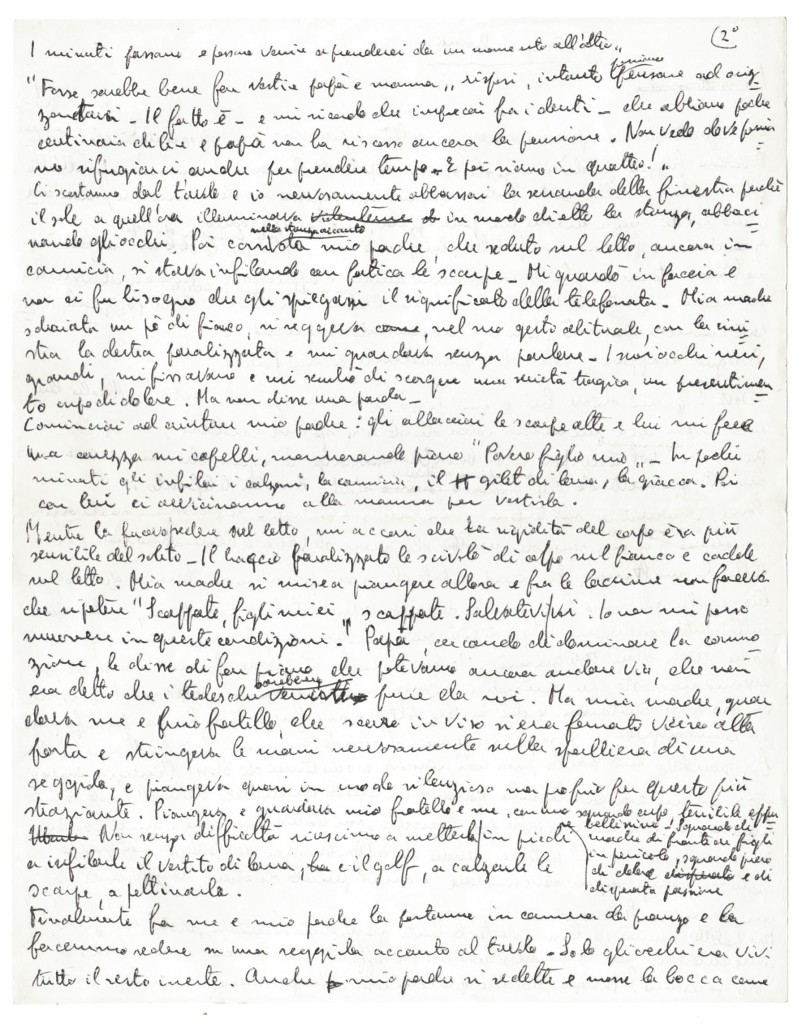 2°
I minuti passano e possono venire a prenderci da un momento all'altro,,
"Forse, sarebbe bene far vestire papà e mamma,, risposi, intanto pensiamo ad orga
zzarci - Il fatto è - e mi ricordo che imprecai fra i denti - che abbiamo poche
centinaia di lire e papà non ha riscosso ancora la pensione. Non vedo dove possia
mo rifugiarci anche per prendere tempo. E poi siamo in quattro!,,
Ci scostammo dal tavolo e io nervosamente abbassai la serranda della finestra perchè
il sole a quell'ora illuminava in modo la stanza, abbaci
nando gli occhi. Poi nella stanza accanto mio padre, che seduto sul letto, ancora in
camicia, si stava infilando con fatica le scarpe - Mi guardò in faccia e
non ci fu bisogno che gli spiegassi il significato della telefonata - Mia madre
sdraiata un pò di fianco, si reggeva come, nel suo gesto abituale, con la sini
stra la destra paralizzata e mi guardava senza parlare - I suoi occhi neri,
grandi, mi fissavano e mi sembrò di scorgere una serietà tragica, un presentimen
to cupo di dolore. Ma non disse una parola -
Cominciai ad aiutare mio padre: gli allacciai le scarpe alte e lui mi fece
una carezza sui capelli, mormorando piano "Povero figlio mio" - In pochi
minuti gli infilai i calzoni, la camicia, il gilet di lana, la giacca. Poi
con lui ci avvicinammo alla mamma per vestirla.
Mentre la facevo sedere sul letto, mi accorsi che la rigidità del corpo era più
sensibile del solito - Il braccio paralizzato le scivolò di colpo sul fianco e cadde
sul letto. Mia madre si mise a piangere allora e fra le lacrime non faceva
che ripetere "Scappate, figli miei, scappate. Salvatevi voi. Io non mi posso
muovere in queste condizioni.." Papà, cercando di dominare la commo
zione, le disse di far piano che potevamo ancora andare via, che non
era detto che i tedeschi sarebbero venuti pure da noi. Ma mia madre, guar
dava me e mio fratello, che scuro in viso si era fermato vicino alla
porta e stringeva le mani nervosamente sulla spalliera di una
seggiola, e piangeva quasi in modo silenzioso ma proprio per questo più
straziante. Piangeva e guardava mio fratello e me, con uno sguardo cupo, terribile eppur
bellissimo - Sguardo di
madre di fronte ai figli
in pericolo, sguardo pieno
di dolore disperato e di
disperata passione
Non senza difficoltà riuscimmo a metterla in piedi
a infilarle il vestito di lana, e il golf, a calzarle le
scarpe, a pettinarla.
Finalmente fra me e mio padre la portammo in camera da pranzo e la
facemmo sedere su una seggiola accanto al tavolo - Solo gli occhi eran vivi
tutto il resto inerte. Anche mio padre si sedette e mosse la bocca come